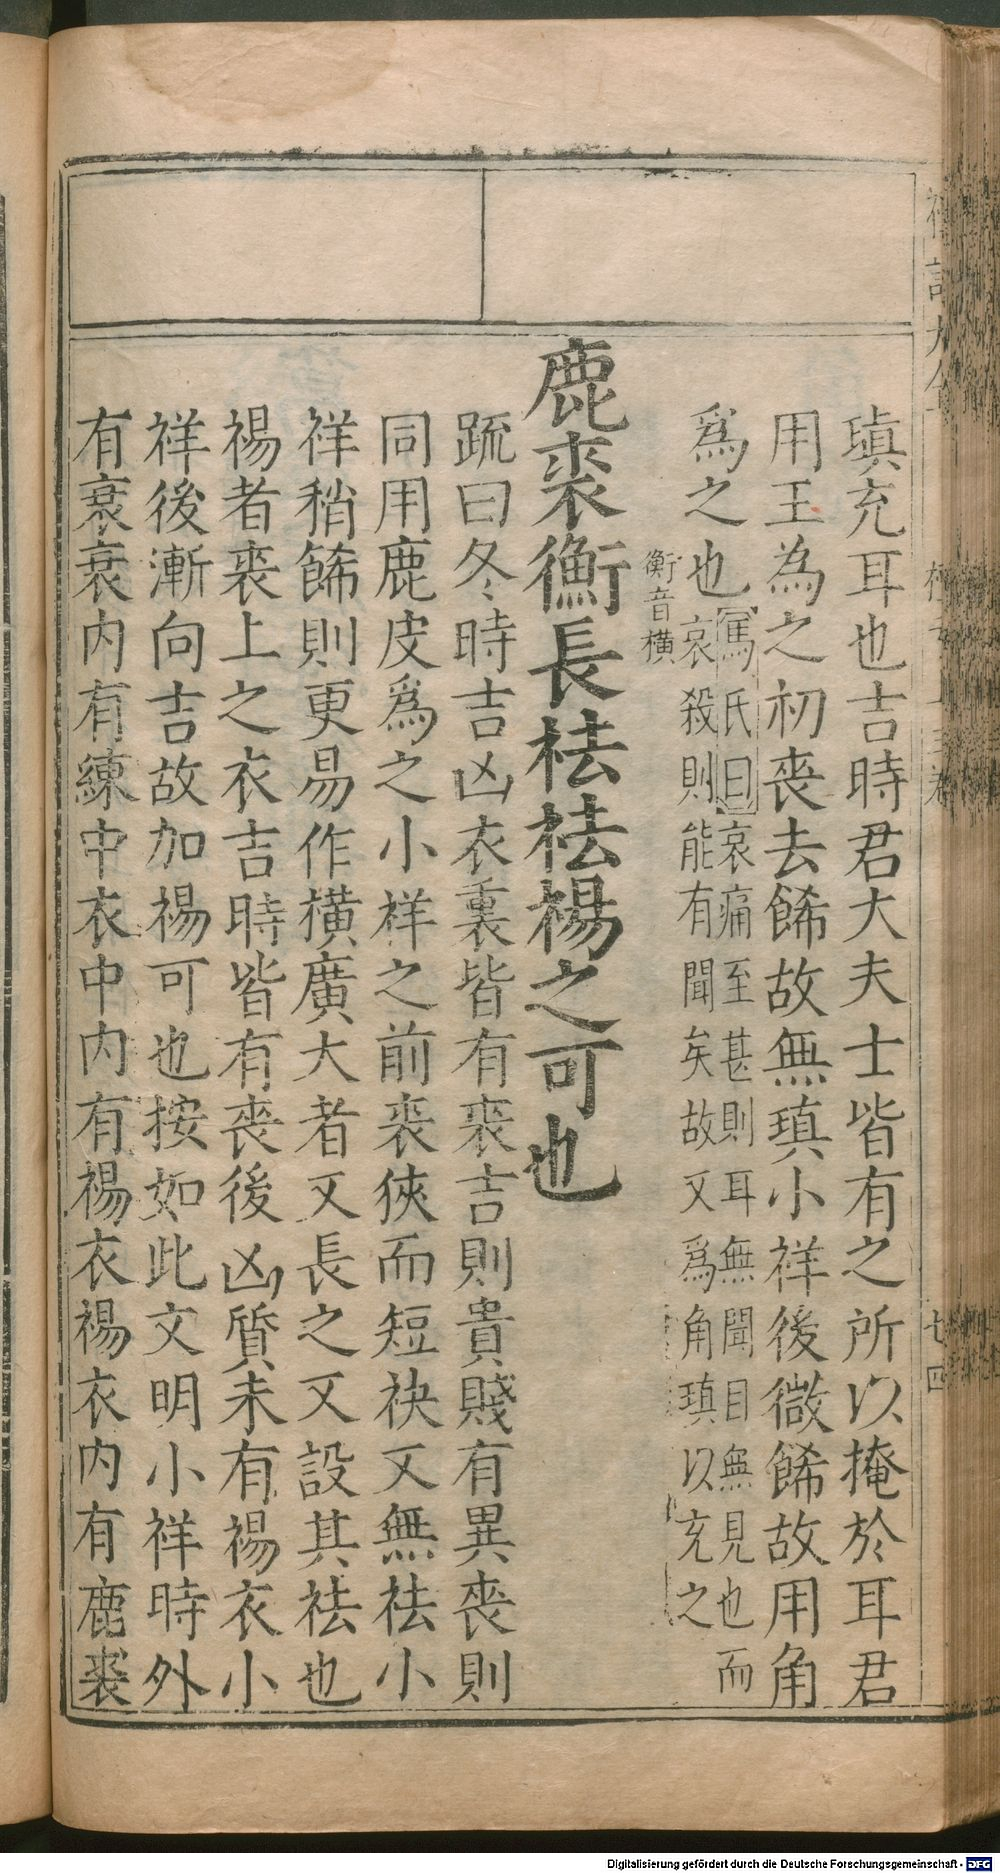 瑱充耳也吉時君大夫士皆有之所以掩於耳君
用玉為之初喪去餙故無瑱小祥後微餙故用角
爲之也馮氏曰哀痛至甚則耳無聞目無見也而
哀殺則能有聞矣故又爲角瑱以充之
衡音橫
鹿裘衡長袪袪裼之可也
疏曰冬時吉凶衣裏皆有裘吉則貴賤有異喪則
同用鹿皮爲之小祥之前裘狹而短袂又無袪小
祥稍餙則更易作橫廣大者又長之又設其袪也
裼者裘上之衣吉時皆有喪後凶質未有裼衣小
祥後漸向吉故加裼可也按如此文明小祥時外
有衰衰内有練中衣中衣内有裼衣裼衣内有鹿裘
七四
Digitalisierung gefördert durch die Deutsche Forschungsgemeinschaft - DFG